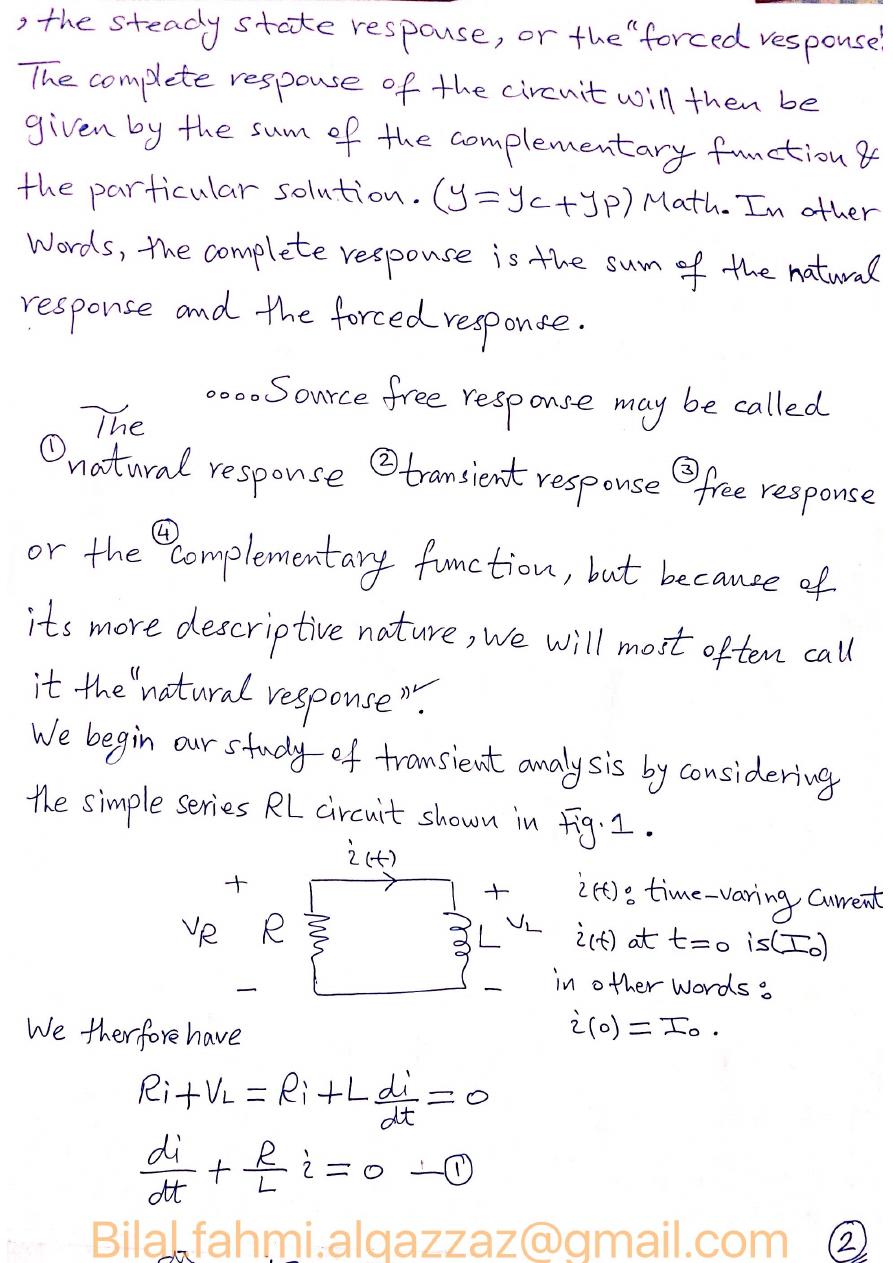 , the steady state response, or the "forced response"
The complete response of the circuit will then be
given by the sum of the complementary function &
the particular solution. (y = yc + yp) Math. In other
Words, the complete response is the sum of the natural
response and the forced response.
The ....Source free response may be called
① natural response ② transient response ③ free response
or the ④ complementary function, but because of
its more descriptive nature, we will most often call
it the "natural response".
We begin our study of transient analysis by considering
the simple series RL circuit shown in Fig. 1.
i(t)
+ + i(t): time-varing Current
VR R L VL i(t) at t=0 is (I₀)
- - in other words:
We therfore have i(0) = I₀.
Ri + VL = Ri + L di/dt = 0
di/dt + R/L i = 0 —①
Bilal.fahmi.alqazzaz@gmail.com ②